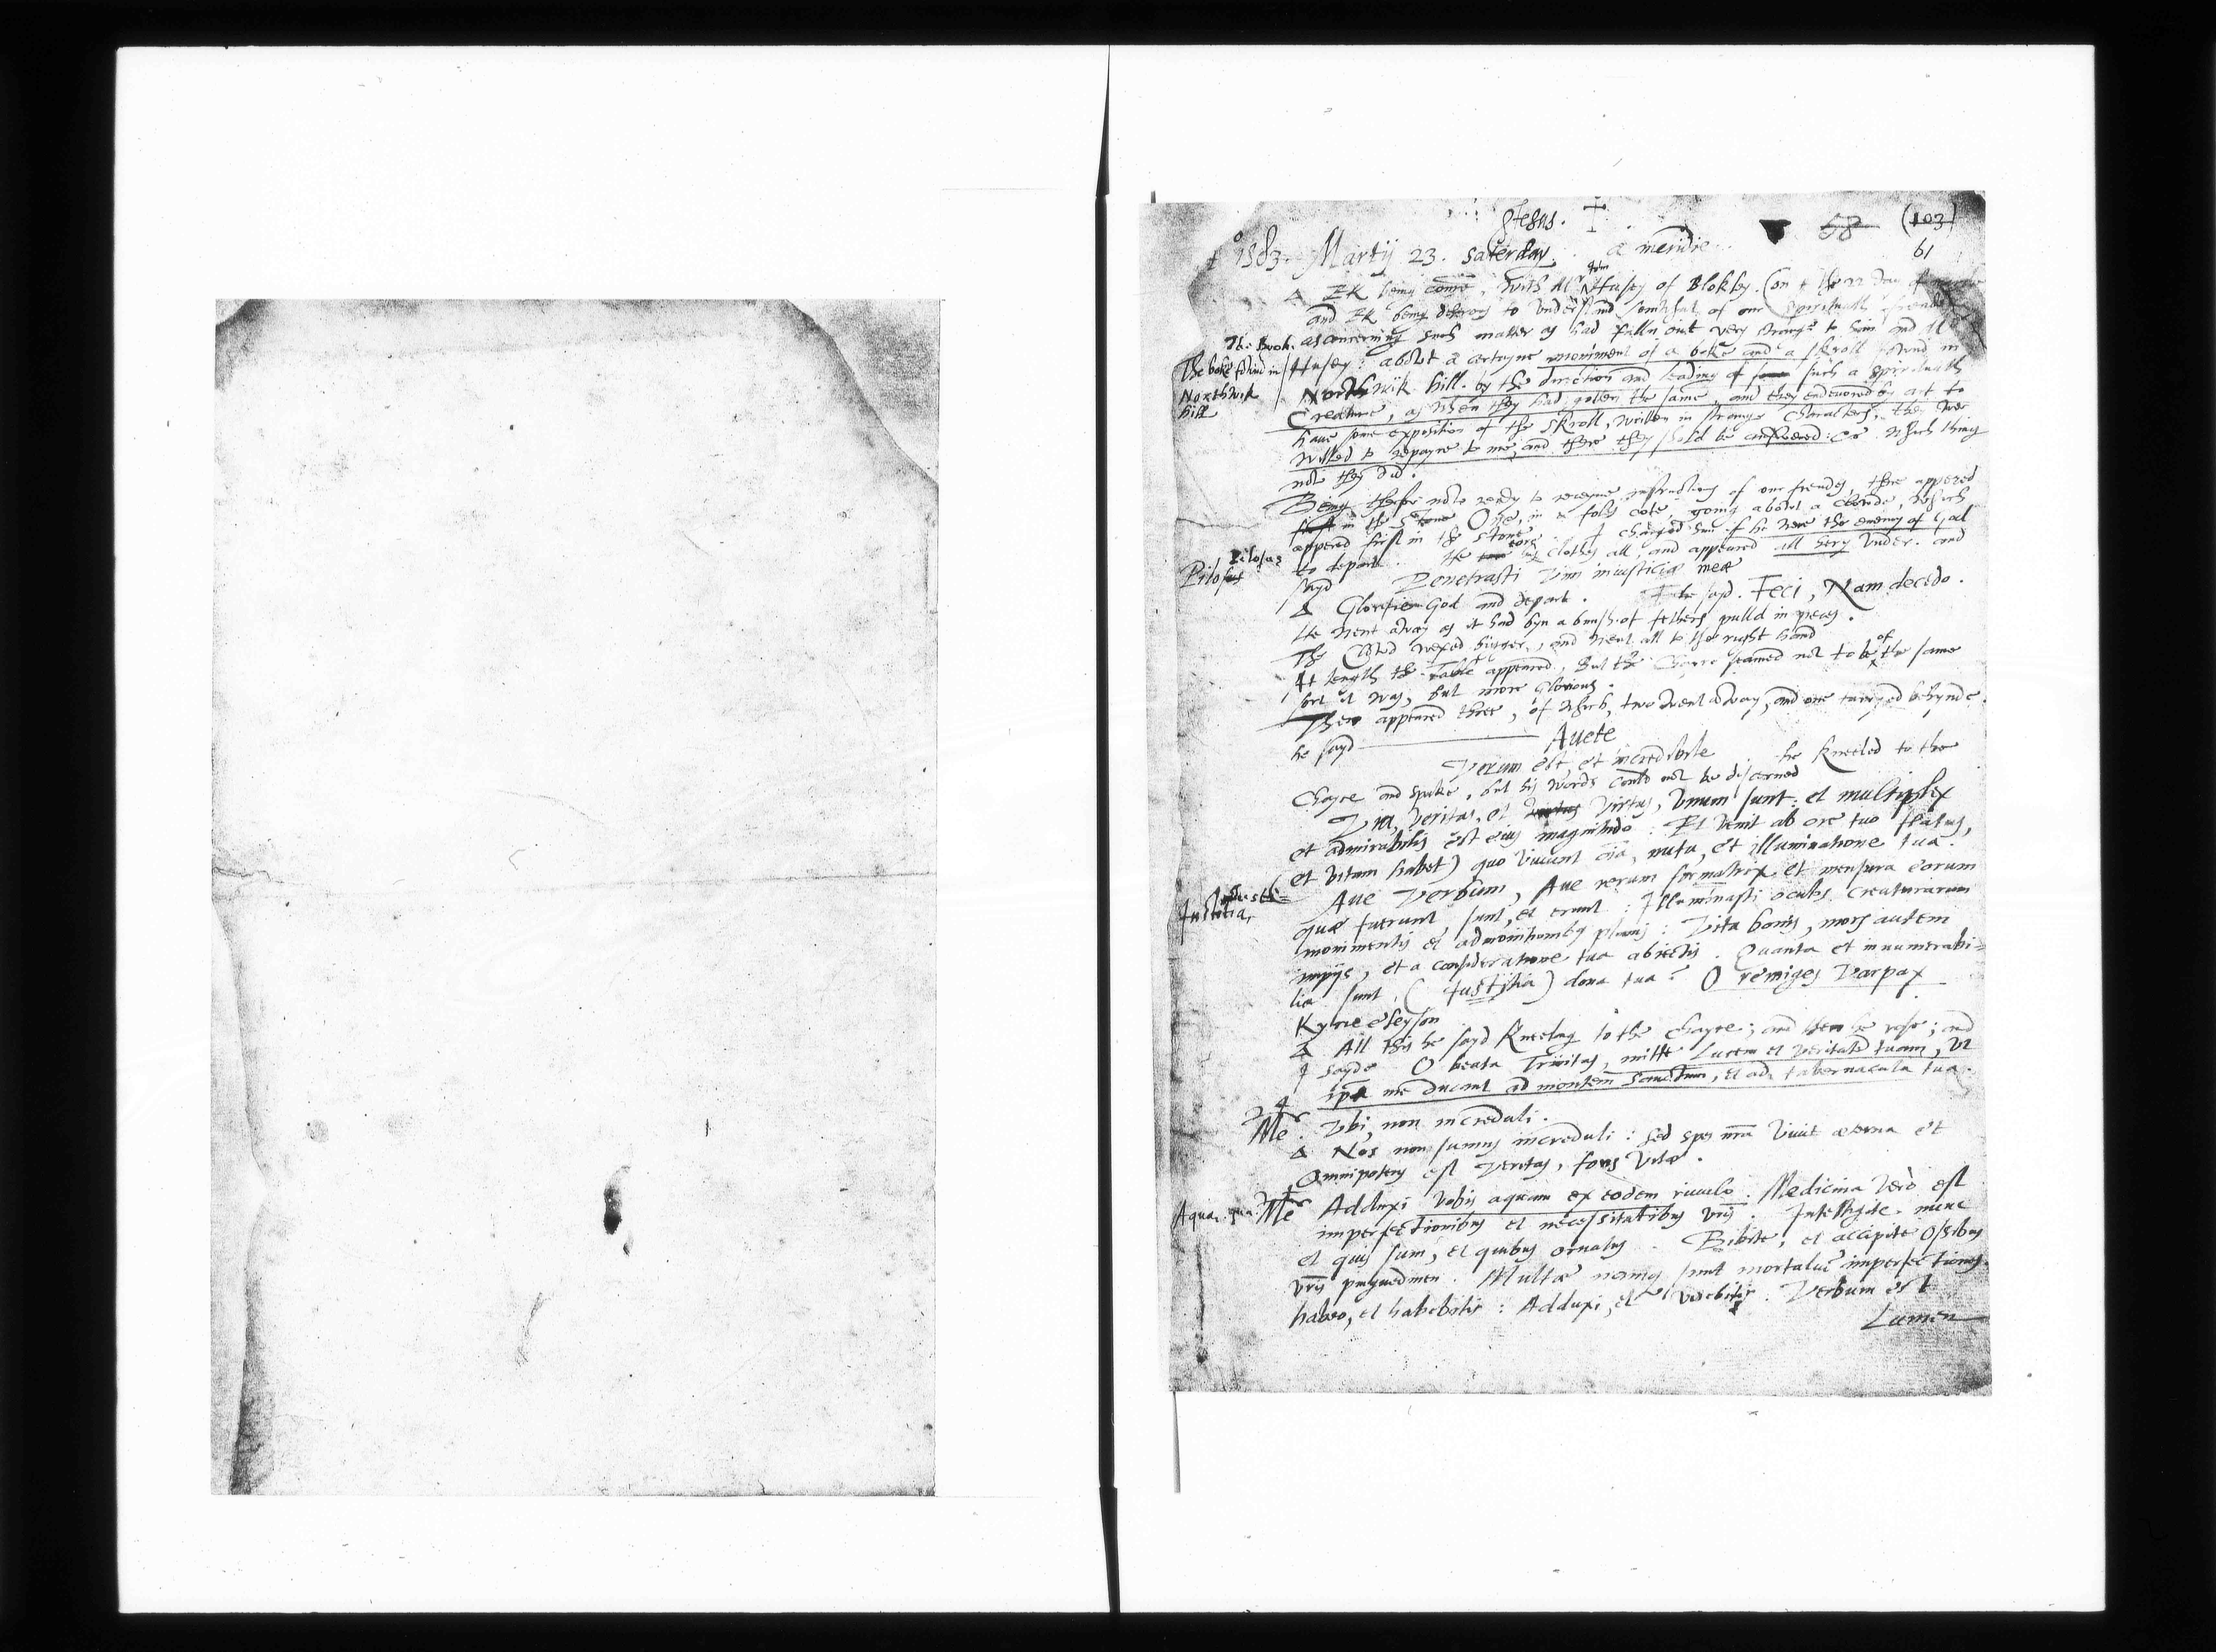 Jhesus. ✝
58 (103)
61
✝ 1583. Martij 23. saterday. a meridie.
Δ EK being come, with Mr Jhon Husey of Blokley. (on the 22 day of
and EK being desyrous to understand somwhat of our spirituall frendes
The Book. as concerning such matter as had falln out very strange to him and Mr
The boke fownd in Northwik hill
Husey: abowt a certayne moniment of a boke and a skroll fownd in
Northwik hill. by the direction and leading of such a spirituall
Creature, as when they had gotten the same, and they endevored by art to
have some exposition of the skroll, written in strange Characters, they wer
willed to repayre to me, and there they shold be answered: &c. which thing
now they did.
Being therfor now ready to receyve instructions of our frendes, there appered
in the Stone One, in a foles cote, going abowt a clowde, which
appered first in the stone. I charged him if he were the enemy of God
Pilosus
Pilosus
to depart. He tore his clothes all, and appeared all hery under. and
sayd Penetrasti vim iniusticiæ meæ
Δ Glorifie God and depart. He sayd. Feci, Nam decedo.
He went away as it had byn a bunsh of fethers pulld in peces.
The Clowd wexed bigger, and went all to the right hand
At length the Table appeared, But the Chayre seamed not to be of the same
sort it was, but more Glorious.
There appeared three, of which, two went away, and one taryed behynde.
he sayd Auete
Verum est, et incredibile. he kneeled to the
Chayre and spake, but his words could not be discerned
Via, Veritas, et Virtus, Vnum sunt: et multiplex
et admirabilis est eius magnitudo: Et venit ab ore tuo flatus,
(et vitam habet) quo viuunt oīa, nutu, et illuminatione tua.
Aue Verbum, Aue rerum formatrix et mensura eorum
Justitia
quæ fuerunt sunt, et erunt: Illuminasti oculos creaturarum
monimentis et admonitionibus planis: Vita bonis, mors autem
impijs, et a consideratione tua abiectis. Quanta et innumerabi=
lia sunt, (Justitia) dona tua? O remiges Varpax
Kyrie eleyson
Δ All this he sayd kneeling to the Chayre; and then he rose; and
I sayde O beata Trinitas, mitte Lucem et veritatē tuam, vt
ipsa me ducant ad montem sanctum, et ad tabernacula tua.
Me. Vbi, non increduli.
Δ Nos non sumus increduli: sed spes nra viuit æterna et
Omnipotens est Veritas, fons vitæ.
Aqua. Me Adduxi vobis aquam ex eodem riuulo. Medicina verò est
imperfectionibus et necessitatibus vris. Intelligite nunc
et quis sum, et quibus ornatus. Bibite, et accipite Ossibus
vris pinguedinem. Multæ namq sunt mortaliū imperfectiones.
habeo, et habebitis: Adduxi, et videbitis. Verbum est
Lumen